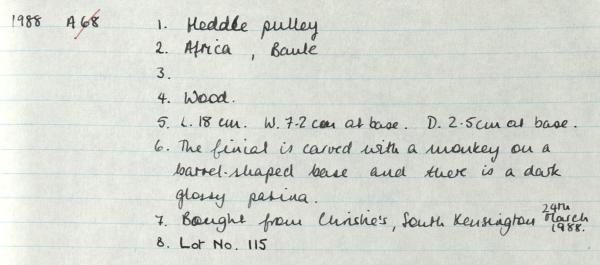 1988 A68 1. Heddle pulley
2. Africa, Baule
3.
4. Wood.
5. L. 18 cm. W. 7.2 cm at base. D. 2.5cm at base.
6. The finial is carved with a monkey on a
barrel-shaped base and there is a dark
glossy patina.
7. Bought from Christie's, South Kensington 24th March 1988.
8. Lot No. 115